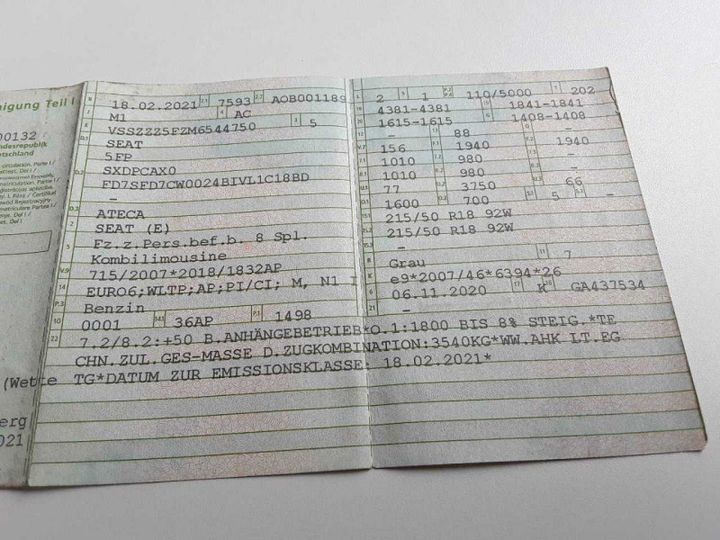 igung Teil I
00132
ndesrepublik
eutschland
18.02.2021 7593 AOB001189
M1 AC
VSSZZZ5FZM6544750 5
SEAT
5FP
SXDPCAX0
FD7SFD7CW0024BIVL1C18BD
-
ATECA
SEAT (E)
Fz.z.Pers.bef.b. 8 Spl.
Kombilimousine
715/2007*2018/1832AP
EURO6;WLTP;AP;PI/CI; M, N1 I
Benzin
0001 36AP 1498
2 1 110/5000 202
4381-4381 1841-1841
1615-1615 1408-1408
- 88 -
156 1940 1940
1010 980 -
1010 980 -
77 3750 66
1600 700 5 -
215/50 R18 92W
215/50 R18 92W
-
-
Grau 7
e9*2007/46*6394*26
06.11.2020 K GA437534
-
7.2/8.2:+50 B.ANHÄNGEBETRIEB*O.1:1800 BIS 8% STEIG.*TE
CHN.ZUL.GES-MASSE D.ZUGKOMBINATION:3540KG*WW.AHK LT.EG
(Wette TG*DATUM ZUR EMISSIONSKLASSE: 18.02.2021*
erg
021